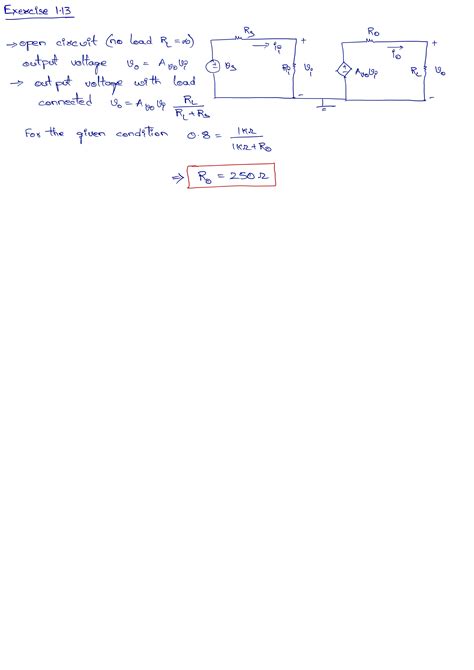 Exercise 1.13
→ open circuit (no load R_L = ∞)
output voltage v_o = A_vo v_i
→ output voltage with load
connected v_o = A_vo v_i R_L / (R_L + R_s)
For the given condition 0.8 = 1KΩ / (1KΩ + R_o)
⇒ R_o = 250Ω
R_s
→ i_i
+
v_s
R_i
v_i
-
R_o
→ i_o
+
A_vo v_i
R_L
v_o
-